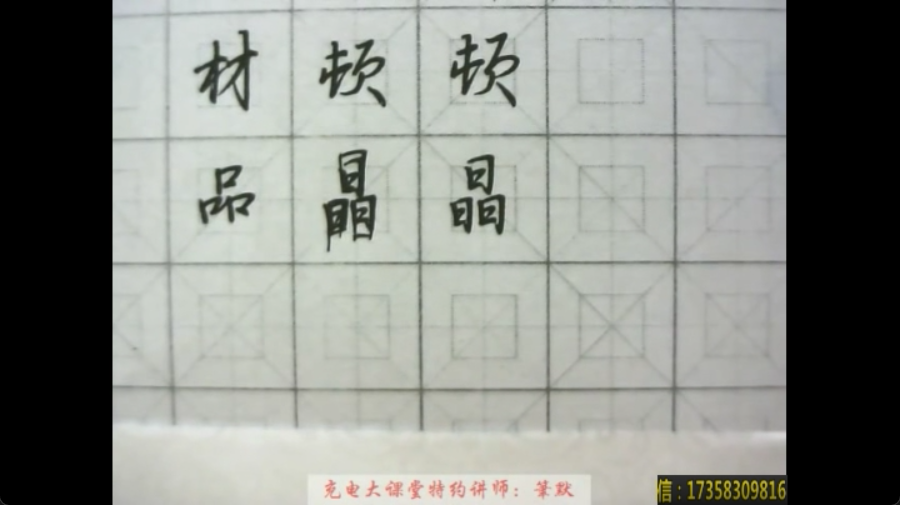 材 顿 顿
品 晶 晶
充电大课堂特约讲师：笔默
信：17358309816